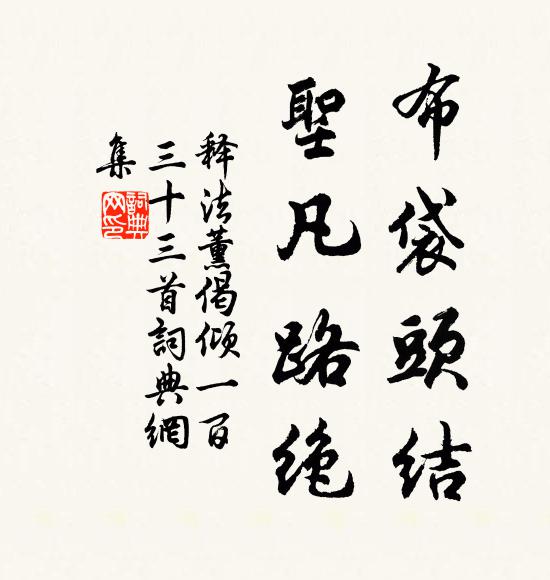 布袋頭结
聖凡路绝
释法薰偈倾一百
三十三首詞典網
集
詞典網印